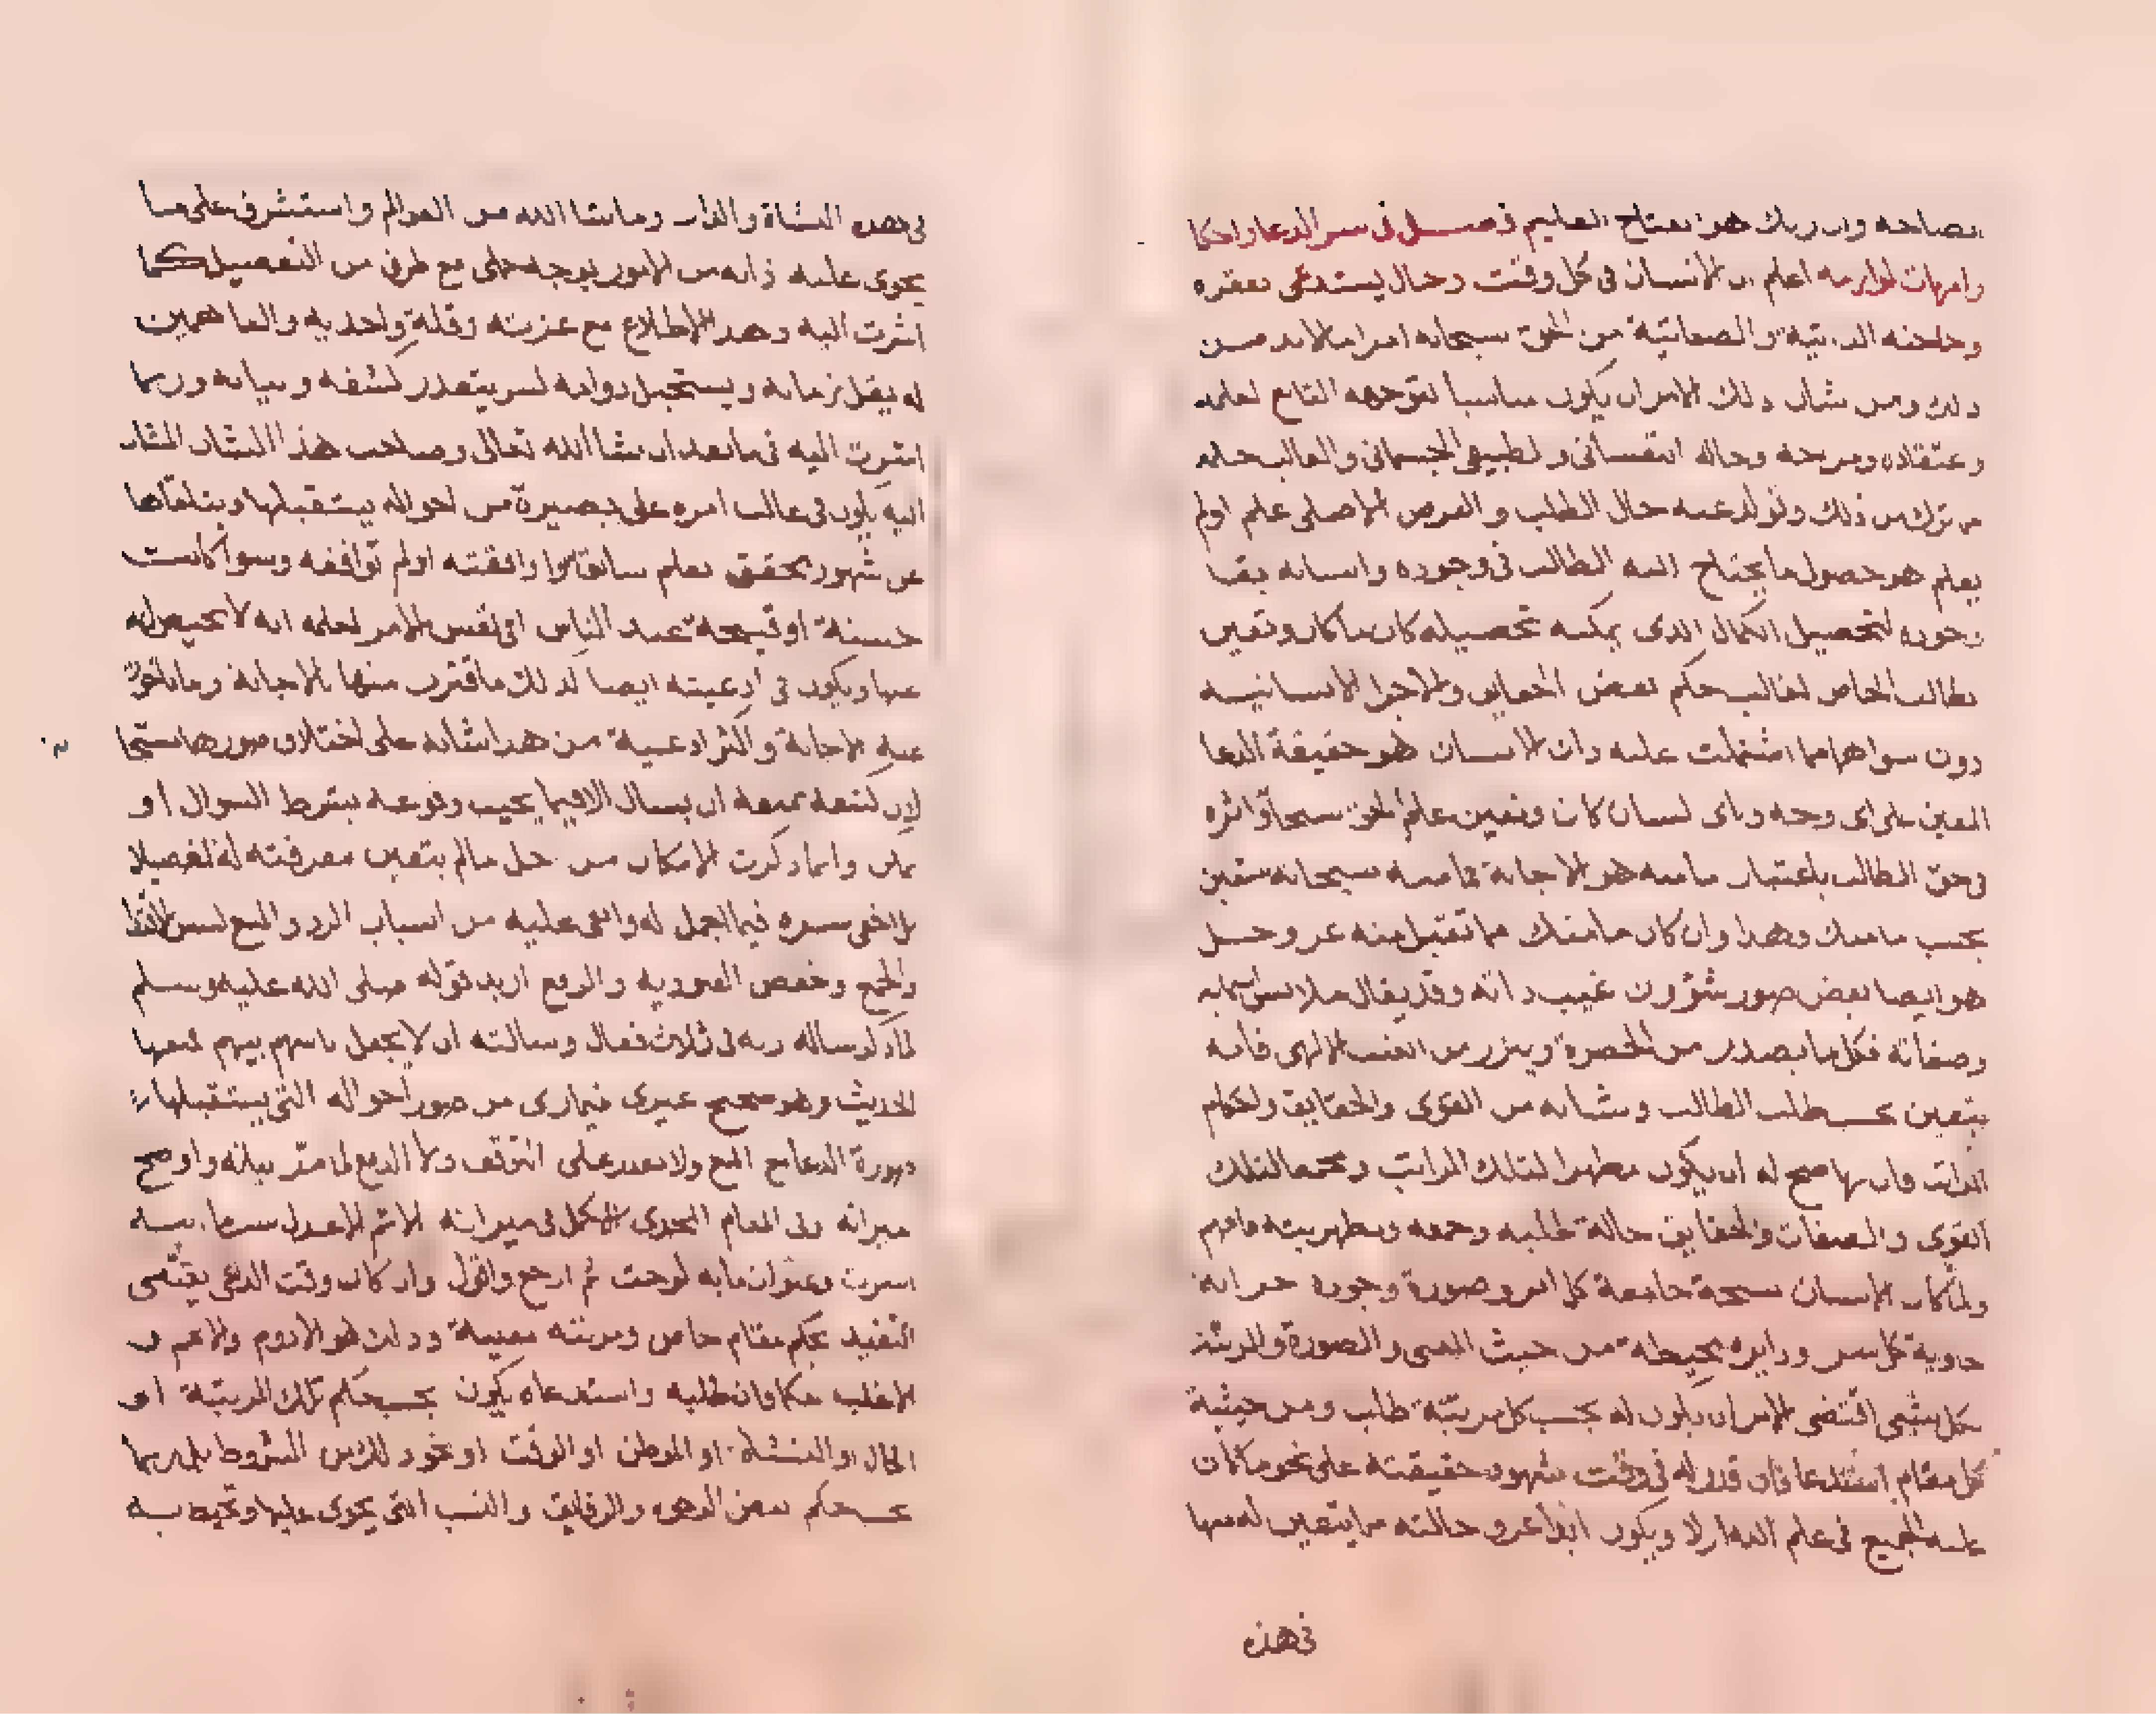 وان ربك هو الفتاح العليم فصل في سر الدعا واحكا
وامهات لوازمه اعلم ان الانسان في كل وقت وحال يستدعي بفقره
وحاجته الذاتية والصفاتية من الحق سبحانه امرا ما لابد من
ذلك ومن شان ذلك الامر ان يكون مناسبا لتوجهه التابع لعلمه
واعتقاده ومزجه وحاله النفساني والطبيعي الجسماني والغالب حكمه
من ذلك وتولد عنه حال الطلب والغرض الاصلي علم اولم
يعلم هو حصول ما يحتاج اليه الطالب في وجوده واسبابه بقا
وجوده لتحصيل الكمال الذي يمكنه تحصيله كان ما كان وتعين
مطالب الخاص لغالب حكم بعض الحقايق والاجزا الانسانيه
دون سواها مما اشتملت عليه ذات الانسان هو حقيقة الدعا
المعين على اي وجه وباي لسان كان وتعين علم الحق سبحانه واثره
في حق الطالب باعتبار ما منه هو الاجابة فما منه سبحانه يتعين
بحسب ما منك وهذا وان كان ما منك مما تقبل منه عز وجل
هو ايضا بعض صور شؤون غيب ذاته وقد يقال ملابس اسمايه
وصفاته فكل ما يصدر من الحضرة ويبرز من الغيب الالهي فانه
يتعين بحسب طلب الطالب وشانه من القوى والحقايق واحكام
المراتب فان بها صح له ان يكون مظهرا لتلك المراتب ومجمعا لتلك
القوى والصفات والحقايق حالة طلبه وجمعه ومظهريته فافهم
ولما كان الانسان نسخة جامعة كل امر وصورة وجوده خزانة
حاوية كل سر ودايره محيطة من حيث المعنى والصورة والمرتبة
بكل شي اقتضى الامر ان يكون له بحسب كل مرتبة طلب ومن حيثية
كل مقام استدعا فان قدر له في وقت شهود حقيقته على نحو ما كانت
عليه الجميع في علم الله ازلا ويكون ايضا عزو حالته مما يتعين له منها
في هذه
في هذه النشاة والدار وما شا الله من العوالم واستشرف على ما
يحوي عليه ذاته من الامور بوجه جملى مع طرف من التفصيل كما
اشرت اليه وهذا الاطلاع مع عزته وقلة واجديه والفاهمين
له يقل زمانه ويستحيل دوامه لسر يتعذر كشفه وبيانه وربما
اشرت اليه فيما بعد ان شا الله تعالى وصاحب هذا الشان المشار
اليه يكون في غالب امره على بصيرة من احواله يستقبلها ويتلقاها
عن شهود محقق بعلم سابق سوا وافقته اولم توافقه وسوا كانت
حسنة او قبيحة عند الناس او في نفس الامر لعلمه انه لا محيص له
عنها ويكون في ادعيته ايضا كذلك ما قترب منها بالاجابة وما تاخرت
عنه الاجابة واكثر ادعية من هذا شانه على اختلاف صورها مستجا
لان كشفه يمنعه ان يسال الا فيما يجب وقوعه بشرط السوال او
يمكن وانما ذكرت الامكان من اجل ما لم يتعين معرفته له تفصيلا
بل اخفي سره فيما اجمل له وانعمى عليه من اسباب الرد والمنع
والجمع وخفض العبودية والرفع اريد قوله صلى الله عليه وسلم
لما ذكر سواله ربه في ثلاث فقال وسالته ان لا يجعل باسهم بينهم فمنعها
الحديث وهو صحيح عيرى فيما رى من صور احواله التي يستقبلها
صورة الدعا مع المنع ولا يقدر على التوقف ولا الدفع لما مر بيانه واوضح
ميزانه وفي المقام المحمدي الاكمل في ميزانه الاتم الاعدل
اسررت وعنوان ما به لوحت ثم ارجع واقول وان كان وقت الداعي يقتضي
التقييد بحكم مقام خاص ومرتبة معينة وذلك هو الادوم والاعم و
الاغلب حكما فان طلبه واستدعاه يكون بحسب حكم تلك المرتبة او
الحال او النشاة او الموطن او الوقت او نحو ذلك من الشروط
بحسب حكم بعض الوجوه والرقايق والنسب التي يحوي عليها وتحيط به